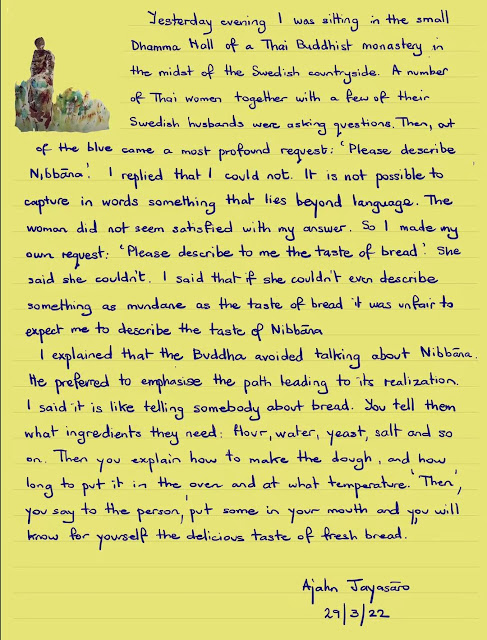 Yesterday evening I was sitting in the small
Dhamma Hall of a Thai Buddhist monastery in
the midst of the Swedish countryside. A number
of Thai women together with a few of their
Swedish husbands were asking questions. Then, out
of the blue came a most profound request: 'Please describe
Nibbāna'. I replied that I could not. It is not possible to
capture in words something that lies beyond language. The
woman did not seem satisfied with my answer. So I made my
own request: 'Please describe to me the taste of bread'. She
said she couldn't. I said that if she couldn't even describe
something as mundane as the taste of bread it was unfair to
expect me to describe the taste of Nibbāna
I explained that the Buddha avoided talking about Nibbāna.
He preferred to emphasise the path leading to its realization.
I said it is like telling somebody about bread. You tell them
what ingredients they need: flour, water, yeast, salt and so
on. Then you explain how to make the dough, and how
long to put it in the oven and at what temperature. 'Then',
you say to the person, 'put some in your mouth and you will
know for yourself the delicious taste of fresh bread.
Ajahn Jayasāro
29/3/22